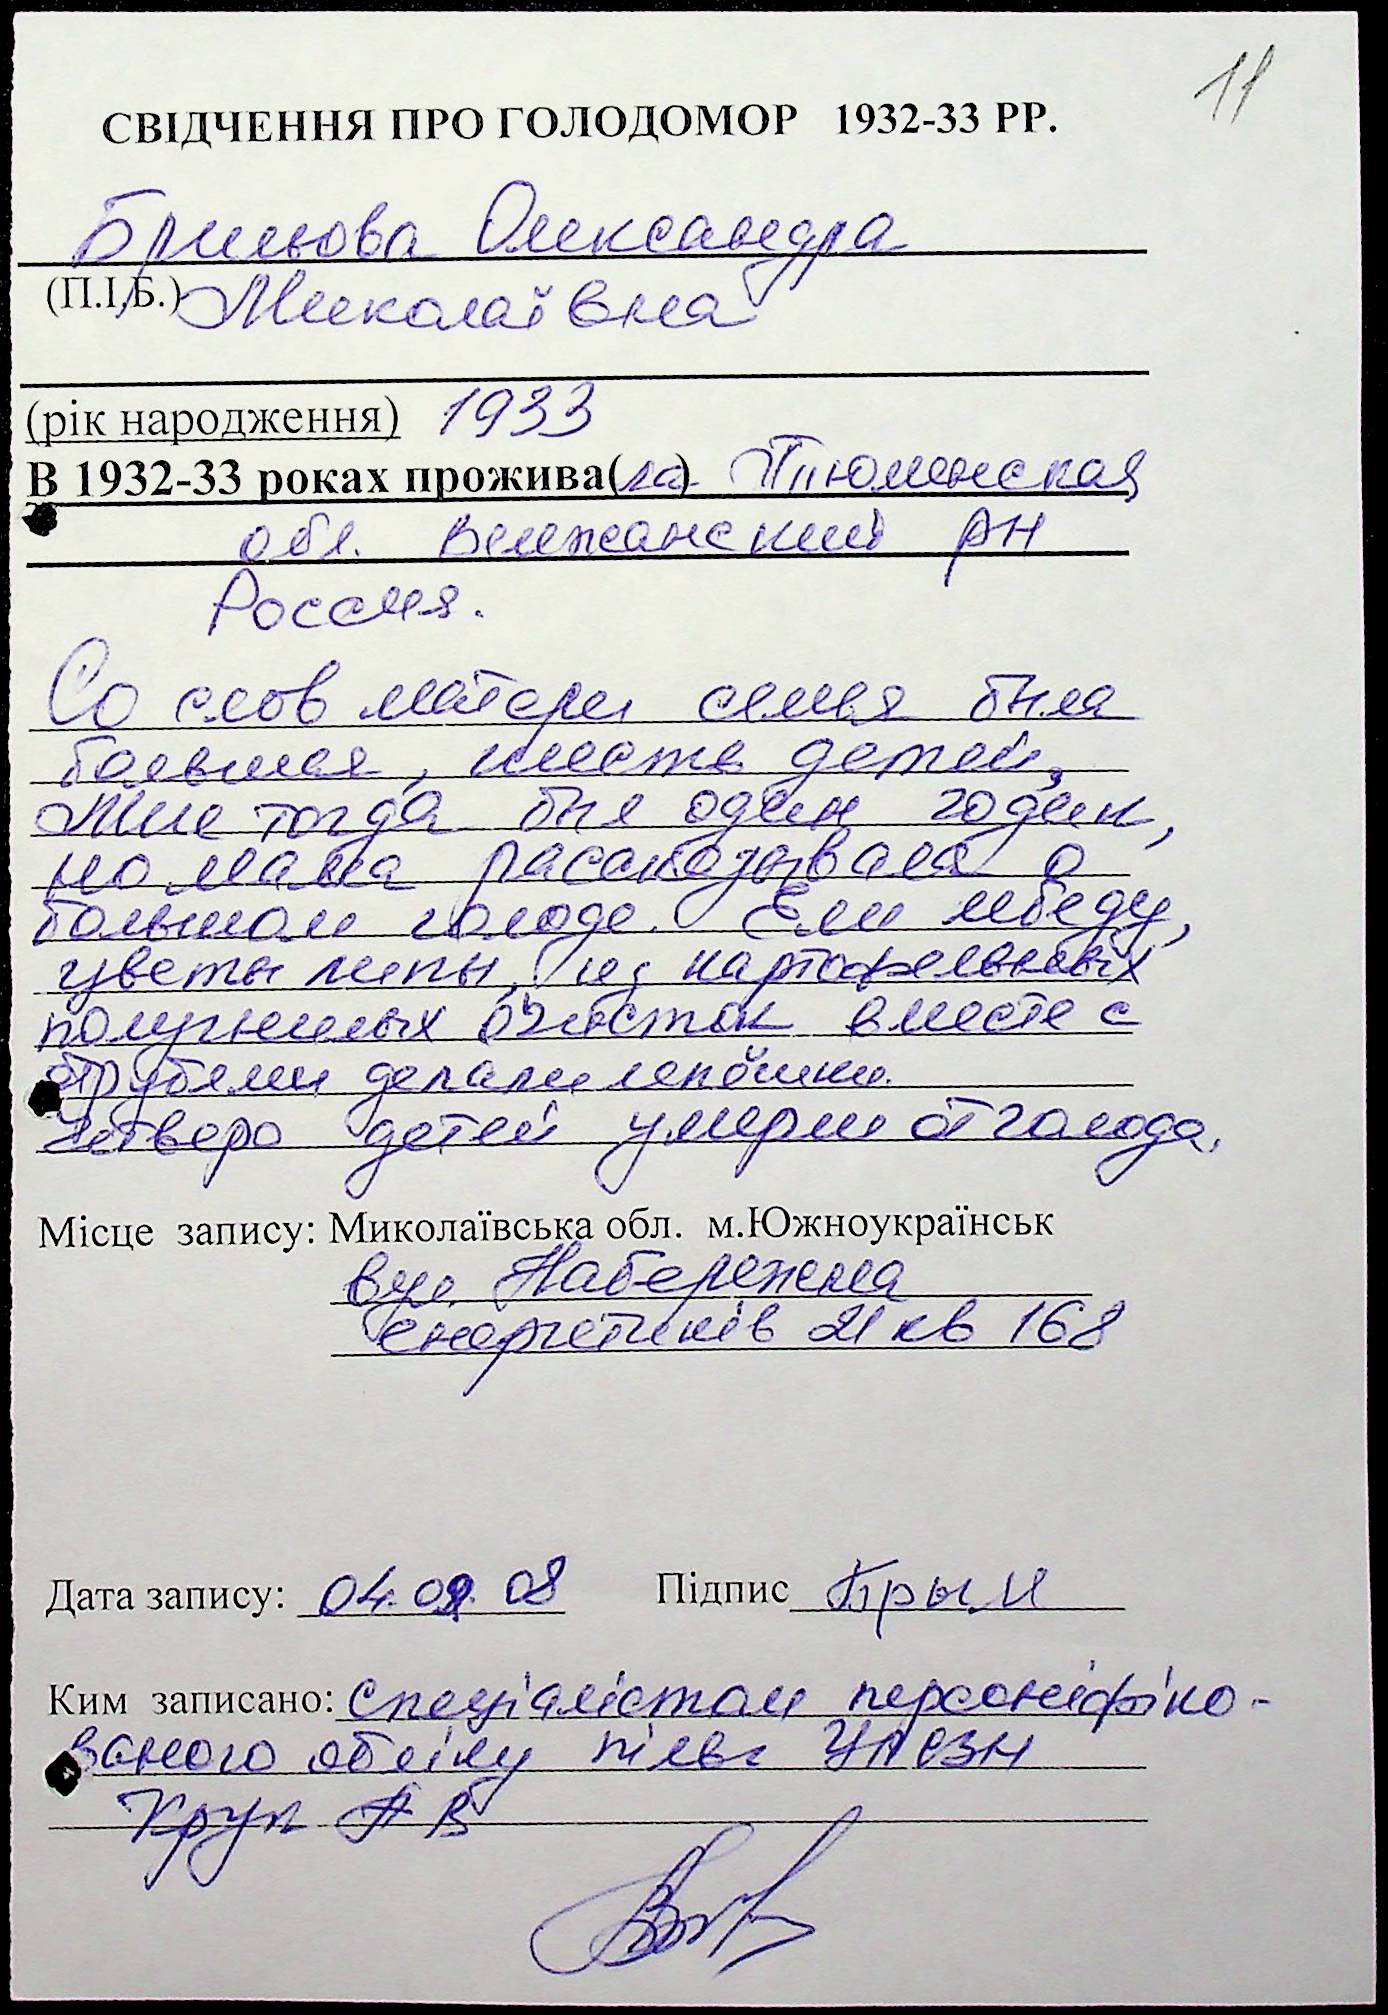 11
СВІДЧЕННЯ ПРО ГОЛОДОМОР 1932-33 РР.
Брильова Олександра
(П.І,Б.) Миколаївна
(рік народження) 1933
В 1932-33 роках прожива(ла) Тюменская
обл. Велижанский рн
Россия.
Со слов матери семья была
большая, шесть детей,
Мне тогда был один годик,
но мама рассказывала о
большом голоде. Ели лебеду,
цветы липы, из картофельных
полугнилых очисток вместе с
отрубями делали лепёшки.
Четверо детей умерли от голода.
Місце запису: Миколаївська обл. м.Южноукраїнськ
вул. Набережна
енергетиків 21 кв 168
Дата запису: 04.09.08 Підпис
Ким записано: спеціалістом персоніфіко-
ваного обліку пільг УПСЗН
Круп